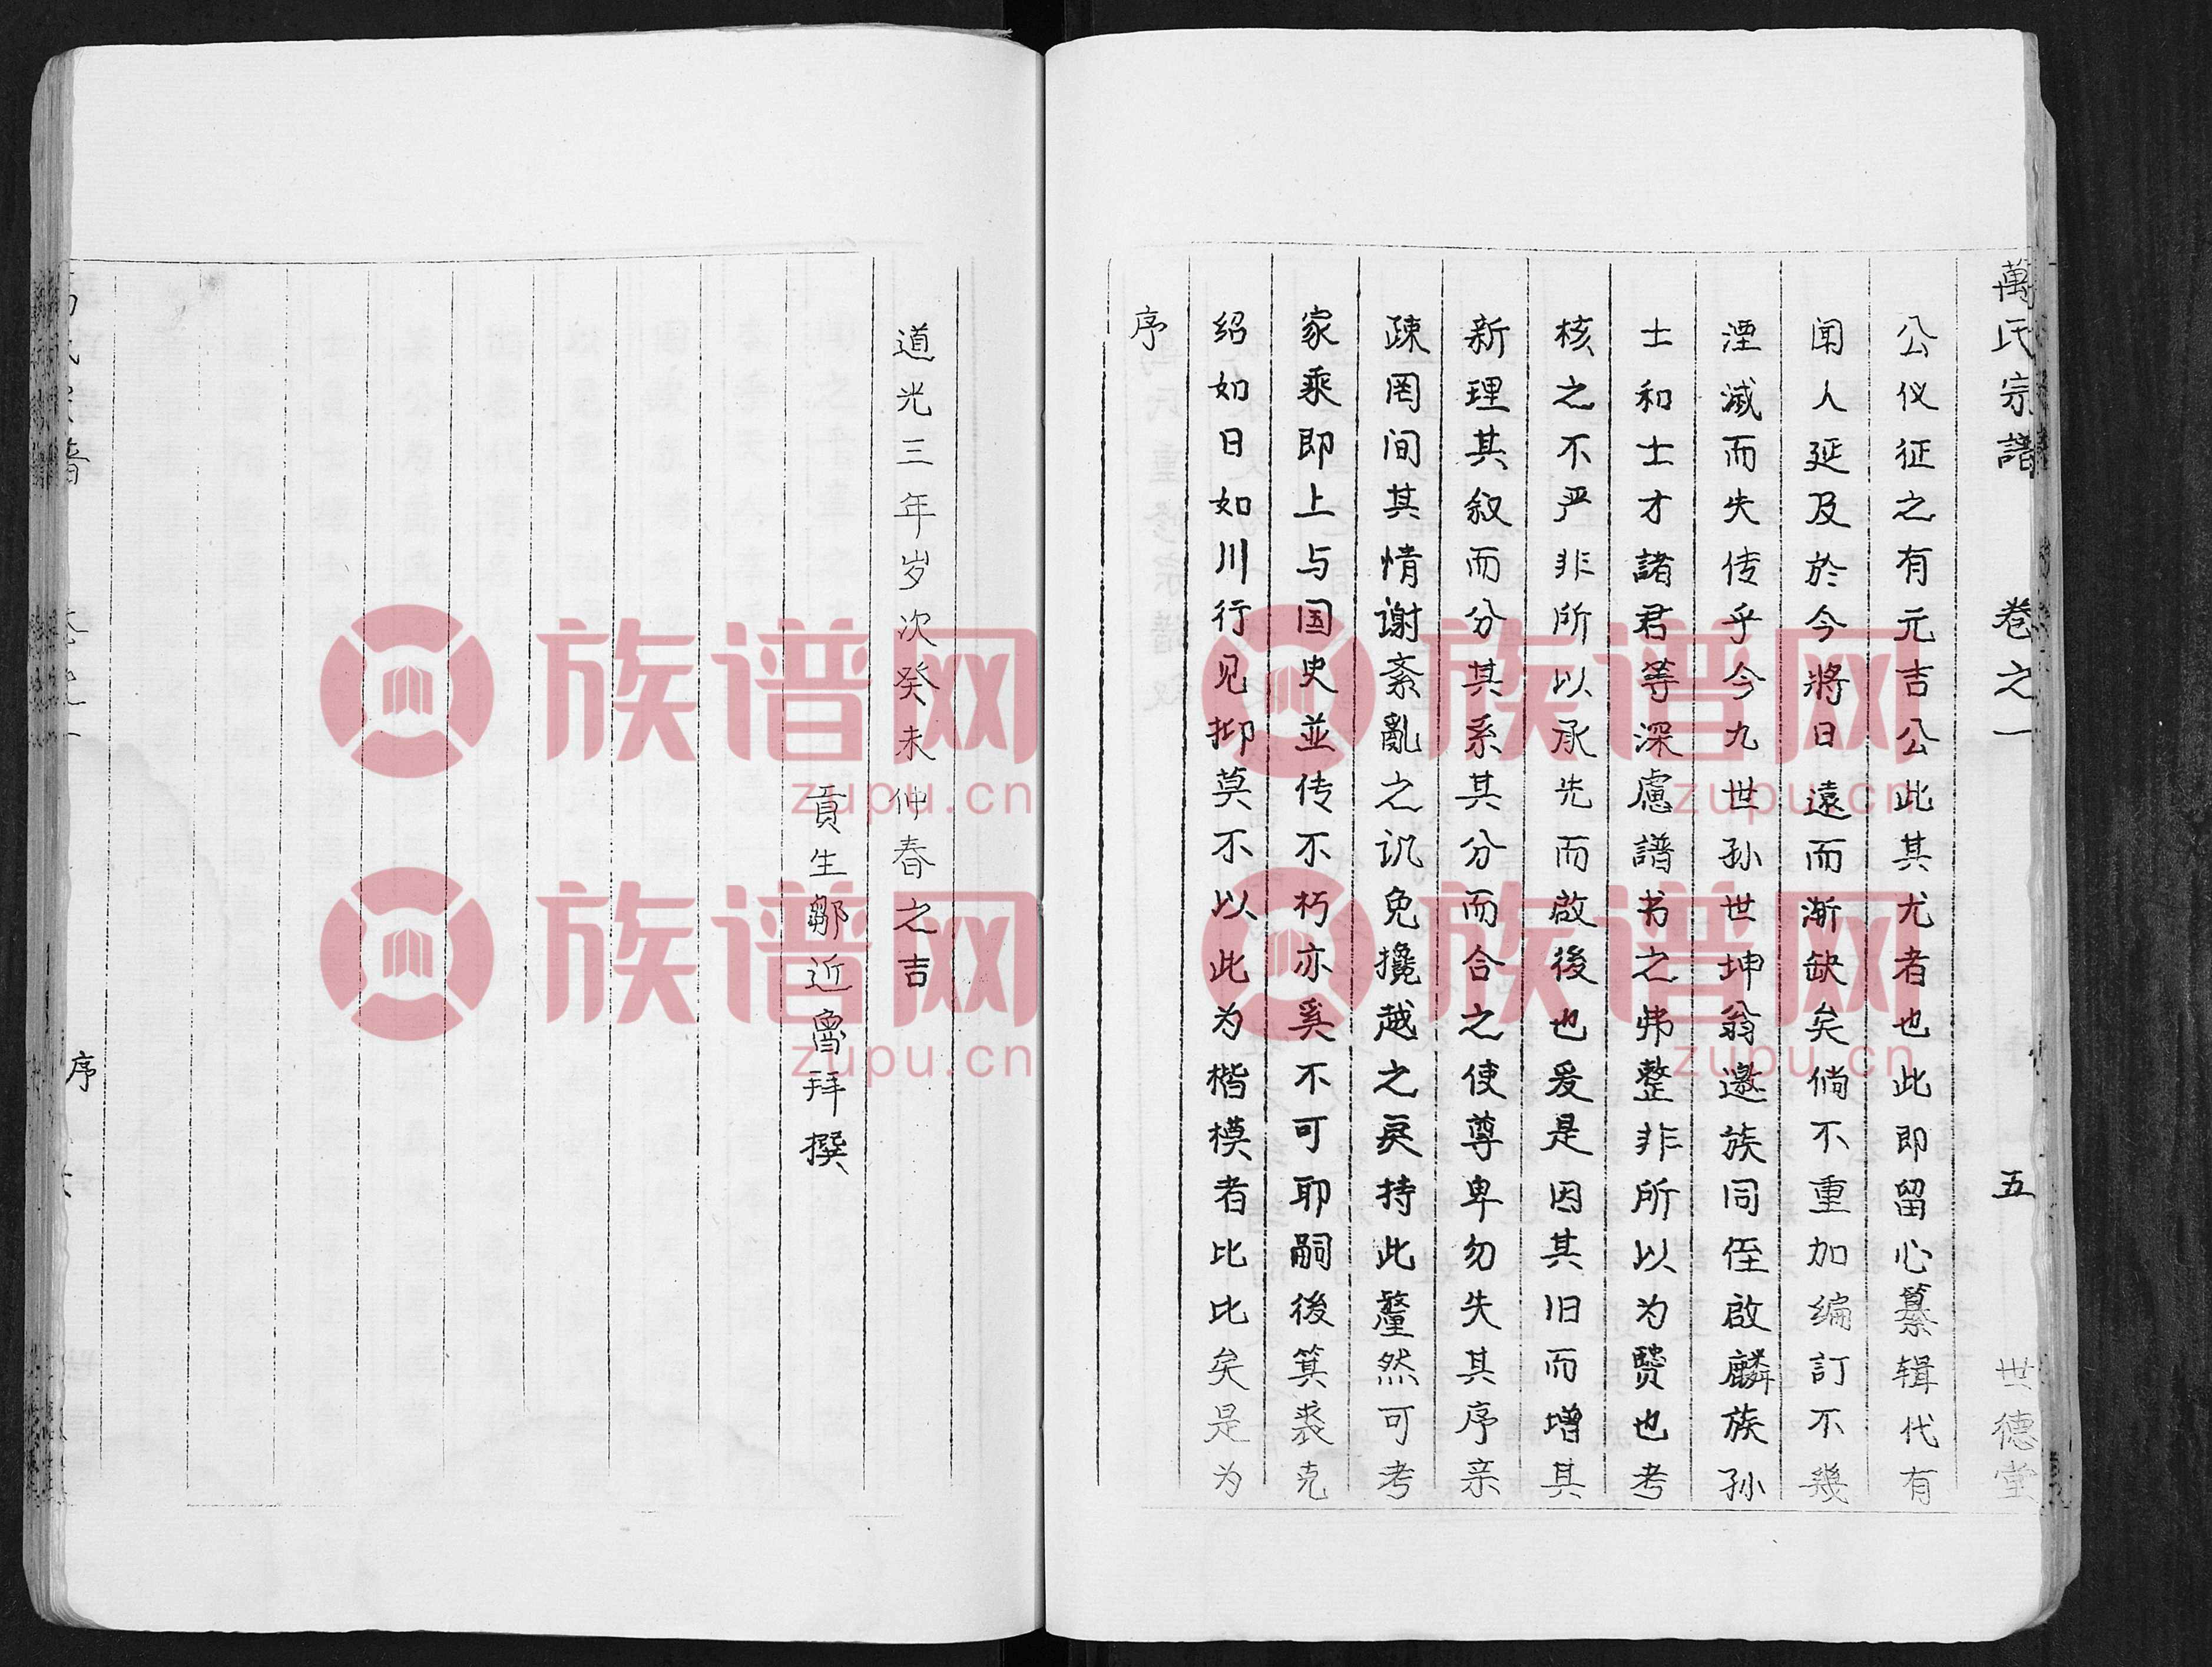 萬氏宗譜 卷之一 五 世德堂
公仪征之有元吉公此其尤者也此即留心纂辑代有
闻人延及於今將日遠而渐缺矣倘不重加编訂不幾
湮滅而失传乎今九世孙世坤翁邀族同侄啟麟族孙
士和士才諸君等深慮譜书之弗整非所以为贤也考
核之不严非所以承先而啟後也爰是因其旧而增其
新理其叙而分其系其分而合之使尊卑勿失其序亲
疎罔间其情谢紊亂之讥免攙越之戾持此釐然可考
家乘即上与国史並传不朽亦奚不可耶嗣後箕裘克
绍如日如川行见抑莫不以此为楷模者比比矣是为
序
道光三年岁次癸未仲春之吉
貢生鄒近魯拜撰
序
族谱网
zupu.cn
族谱网
zupu.cn
族谱网
zupu.cn
族谱网
zupu.cn